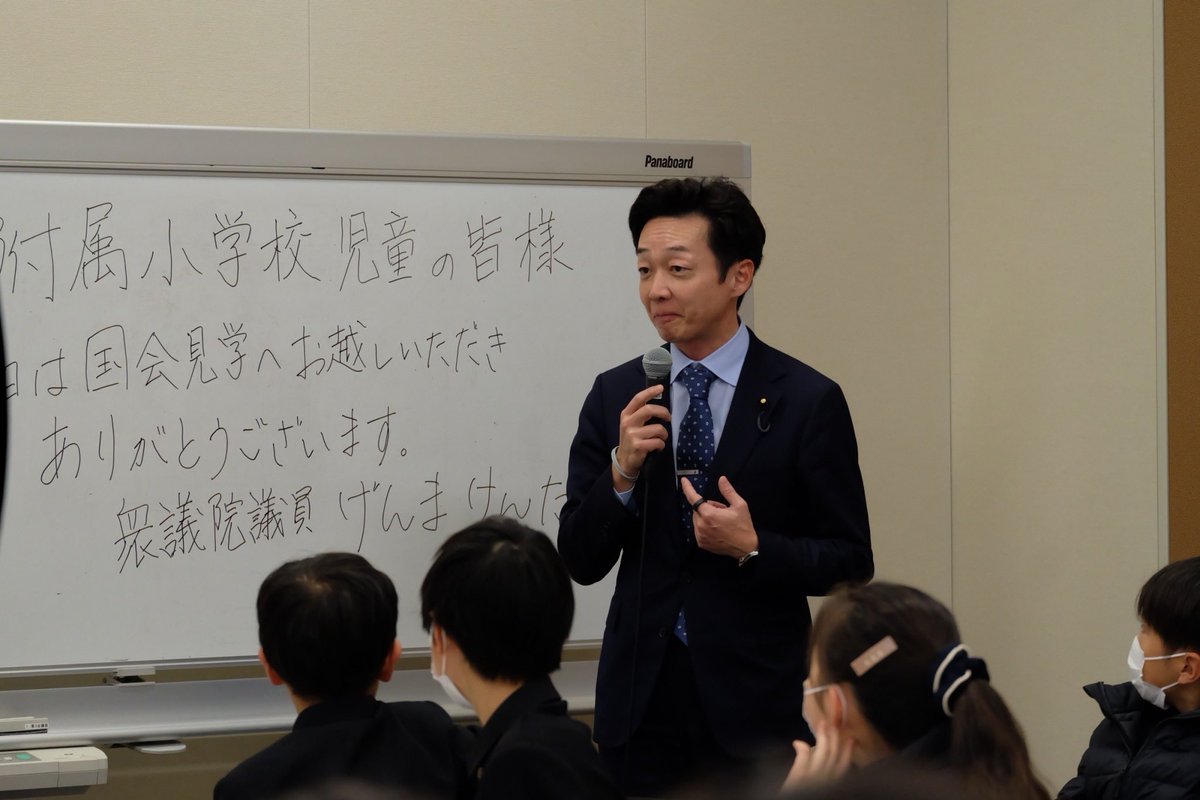 Panaboard
附属小学校児童の皆様
日は国会見学へお越しいただき
ありがとうございます。
衆議院議員 げんま けんた